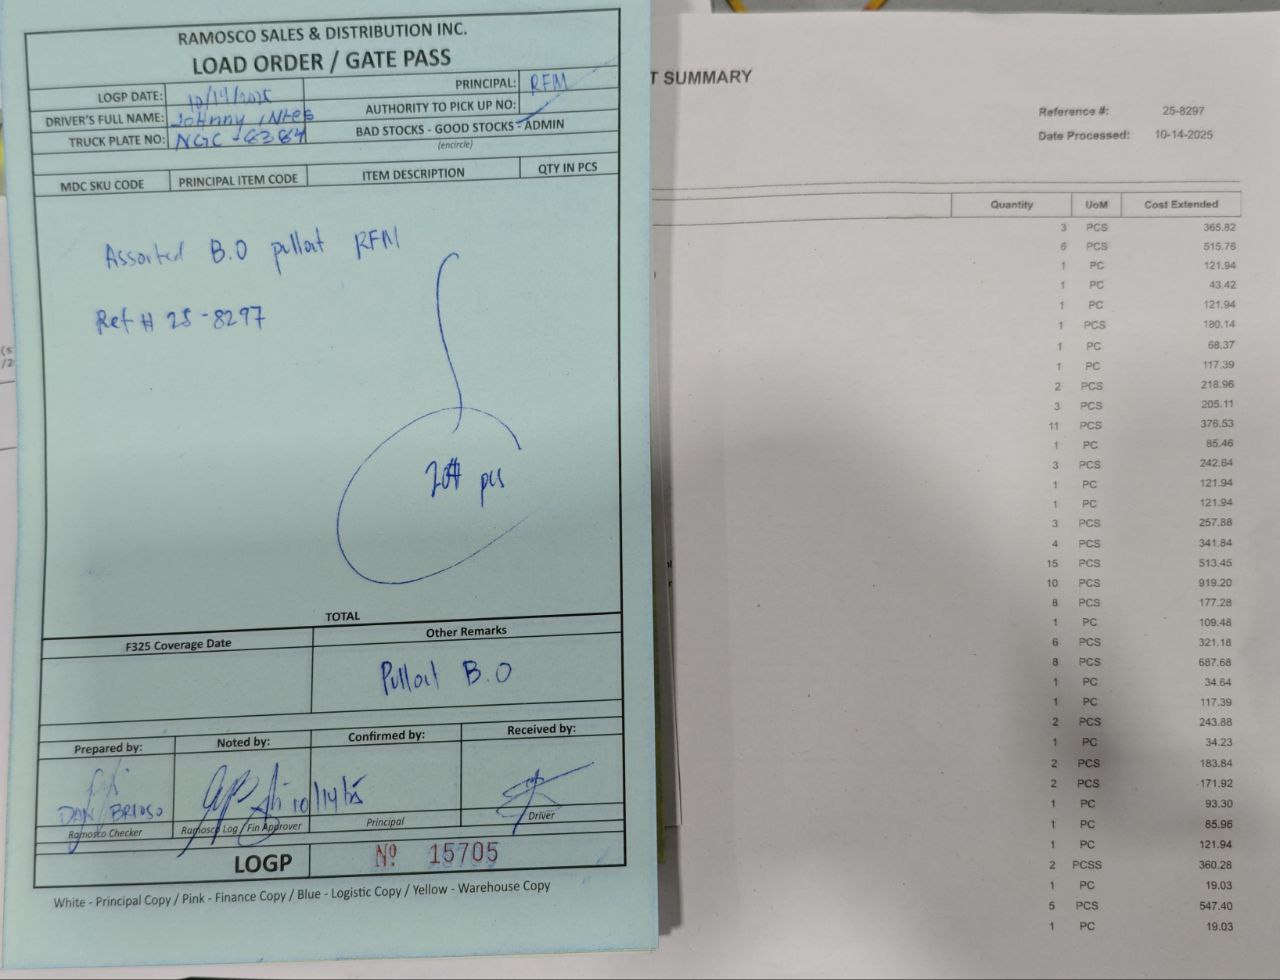 RAMOSCO SALES & DISTRIBUTION INC.
LOAD ORDER / GATE PASS
LOGP DATE: 10/14/2025
PRINCIPAL: RFM
DRIVER'S FULL NAME: Johnny
AUTHORITY TO PICK UP NO:
TRUCK PLATE NO: NGC - 8384
BAD STOCKS - GOOD STOCKS - ADMIN
(encircle)
MDC SKU CODE PRINCIPAL ITEM CODE ITEM DESCRIPTION QTY IN PCS
Assorted B.O pullout RFM
Ref # 25-8297
pcs
TOTAL
F325 Coverage Date Other Remarks
Pullout B.O
Prepared by: Noted by: Confirmed by: Received by:
DAN BRIOSO
10/14/25
Ramosco Checker Ramosco Log / Fin Approver Principal Driver
LOGP Nº 15705
White - Principal Copy / Pink - Finance Copy / Blue - Logistic Copy / Yellow - Warehouse Copy
T SUMMARY
Reference #: 25-8297
Date Processed: 10-14-2025
Quantity UoM Cost Extended
3 PCS 365.82
6 PCS 515.76
1 PC 121.94
1 PC 43.42
1 PC 121.94
1 PCS 180.14
1 PC 68.37
1 PC 117.39
2 PCS 218.96
3 PCS 205.11
11 PCS 376.53
1 PC 85.46
3 PCS 242.64
1 PC 121.94
1 PC 121.94
3 PCS 257.88
4 PCS 341.84
15 PCS 513.45
10 PCS 919.20
8 PCS 177.28
1 PC 109.48
6 PCS 321.18
8 PCS 687.68
1 PC 34.64
1 PC 117.39
2 PCS 243.88
1 PC 34.23
2 PCS 183.84
2 PCS 171.92
1 PC 93.30
1 PC 85.96
1 PC 121.94
2 PCSS 360.28
1 PC 19.03
5 PCS 547.40
1 PC 19.03